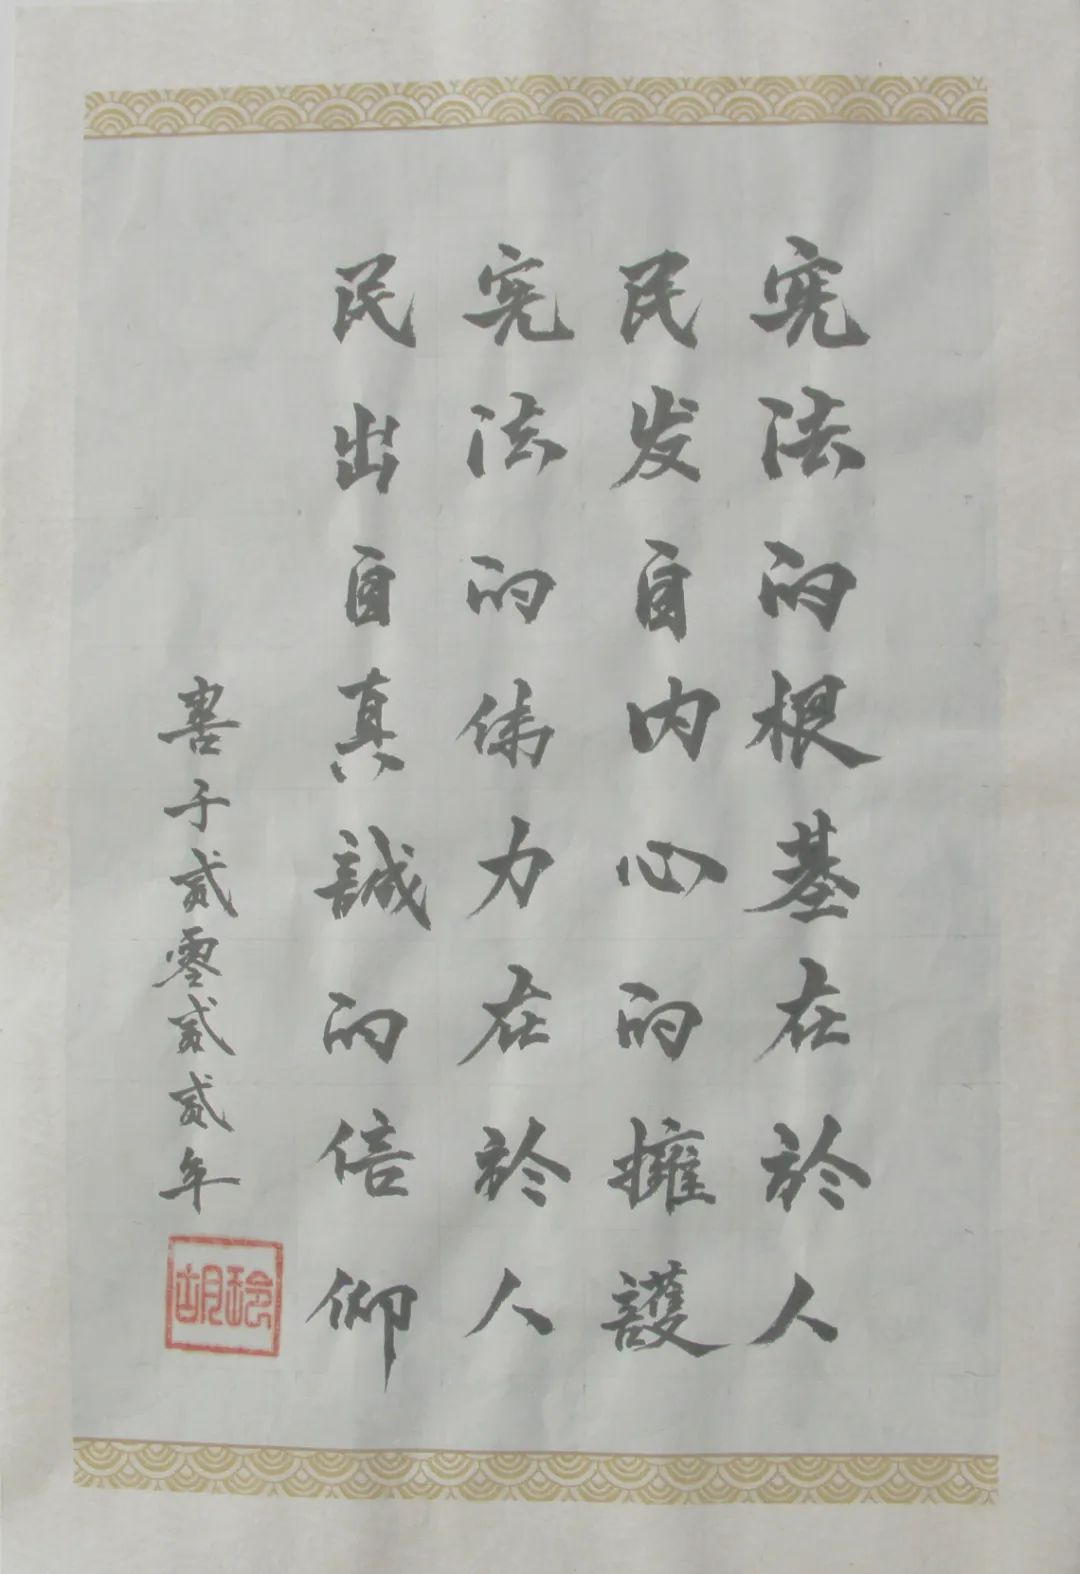 宪法的根基在於人
民发自内心的擁護
宪法的伟力在於人
民出自真誠的信仰
善子贰零贰贰年
胡玲